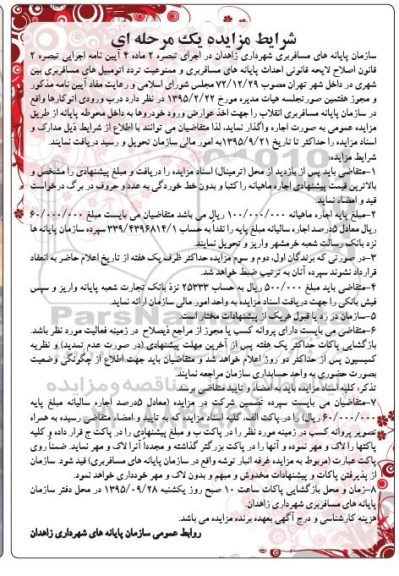 شرایط مزایده یک مرحله ای
سازمان پایانه های مسافربری شهرداری زاهدان در اجرای تبصره ۲ ماده ۴ آیین نامه اجرایی تبصره ۲
قانون اصلاح لایحه قانونی احداث پایانه های مسافربری و ممنوعیت تردد اتومبیل های مسافربری بین
شهری در داخل شهر تهران مصوب ۷۲/۱۲/۲۹ مجلس شورای اسلامی و رعایت مفاد آیین نامه مذکور
و مجوز هفتمین صورتجلسه هیات مدیره مورخ ۱۳۹۵/۲/۲۲ در نظر دارد درب ورودی اتوکارها واقع
در سازمان پایانه مسافربری انقلاب را جهت اخذ عوارض ورود خودروها به داخل محوطه پایانه از طریق
مزایده عمومی به صورت اجاره واگذار نماید، لذا متقاضیان می توانند با اطلاع از شرایط ذیل مدارک و
اسناد مزایده را حداکثر تا تاریخ ۱۳۹۵/۹/۲۱ به امور مالی سازمان تحویل و رسید دریافت نمایند.
شرایط مزایده:
۱-متقاضی باید پس از بازدید از محل (ترمینال) اسناد مزایده را دریافت و مبلغ پیشنهادی را مشخص و
بالاترین قیمت پیشنهادی اجاره ماهیانه را کتبا و بدون خط خوردگی به عدد و حروف در برگ درخواست
قید و امضاء نماید.
۲-مبلغ پایه اجاره ماهیانه ۱۰۰/۰۰۰/۰۰۰ ریال می باشد متقاضیان می بایست مبلغ ۶۰/۰۰۰/۰۰۰
ریال معادل ۵درصد اجاره سالیانه مبلغ پایه را نقدا به حساب ۳۳۹/۴۳۹۶۸۱۴/۱ سپرده سازمان پایانه ها
نزد بانک رسالت شعبه خرمشهر واریز و تحویل نمایند.
۳-در صورتی که برندگان اول، دوم و سوم مزایده حداکثر ظرف یک هفته از تاریخ اعلام حاضر به انعقاد
قرارداد نشوند سپرده آنان به ترتیب ضبط خواهد شد.
۴-متقاضی باید مبلغ ۵۰۰/۰۰۰ ریال به حساب ۲۵۳۳۳ نزد بانک تجارت شعبه پایانه واریز و سپس
فیش بانکی را جهت دریافت اسناد مزایده به واحد امور مالی سازمان ارائه نماید.
۵-سازمان در رد یا قبول هریک از پیشنهادات مختار است.
۶-متقاضی می بایست دارای پروانه کسب یا مجوز از مراجع ذیصلاح در زمینه فعالیت مورد نظر باشد.
بازگشایی پاکات حداکثر یک هفته پس از آخرین مهلت پیشنهادی (در صورت عدم تمدید) و نظریه
کمیسیون پس از حداکثر دو روز اعلام خواهد شد و متقاضیان باید جهت اطلاع از چگونگی وضعیت
بصورت حضوری به واحد حسابداری سازمان مراجعه نمایند.
تذکر: کلیه اسناد مزایده باید به امضاء و تایید متقاضی برسد.
۷-متقاضیان می بایست سپرده تضمین شرکت در مزایده (معادل ۵درصد اجاره سالیانه مبلغ پایه
۶۰/۰۰۰/۰۰۰ ریال) را در پاکت الف، کلیه اسناد مزایده که به تایید و امضاء متقاضی رسیده به همراه
تصویر پروانه کسب در زمینه مورد نظر را در پاکت ب و مبلغ پیشنهادی را در پاکت ج قرار داده و کلیه
پاکتها را لاک و مهر نموده و آنها را در پاکت بزرگتر گذاشته و مجددا آنرا لاک و مهر نماید. ضمنا روی
پاکت عبارت (مربوط به مزایده غرفه انبار توشه واقع در سازمان پایانه های مسافربری) قید شود. سازمان
از پذیرفتن پاکات و پیشنهادات مخدوش و مبهم و بدون لاک و مهر خودداری خواهد نمود.
۸-زمان و محل بازگشایی پاکات ساعت ۱۰ صبح روز یکشنبه ۱۳۹۵/۰۹/۲۸ در محل دفتر سازمان
پایانه های مسافربری شهرداری زاهدان.
هزینه کارشناسی و درج آگهی بعهده برنده مزایده می باشد.
روابط عمومی سازمان پایانه های شهرداری زاهدان